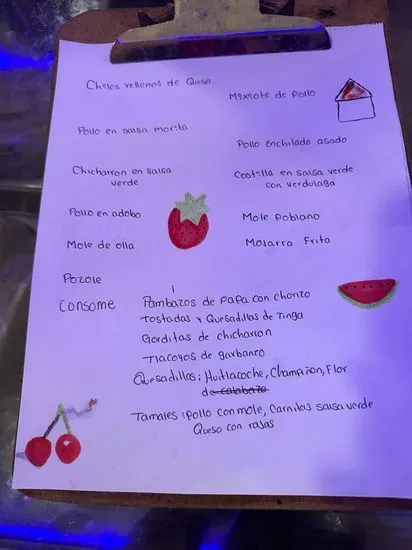 Chiles rellenos de Queso
Mixiote de pollo
Pollo en salsa morita
Pollo enchilado asado
Chicharron en salsa
verde
Costilla en salsa verde
con verdolaga
Pollo en adobo
Mole poblano
Mole de olla
Mojarra Frita
Pozole
Consome
Pambazos de papa con chorizo
Tostadas y Quesadillas de Tinga
Gorditas de chicharron
Tlacoyos de garbanzo
Quesadillas; Huitlacoche, Champiñon, Flor
de calabaza
Tamales; pollo con mole, Carnitas salsa verde
Queso con rajas